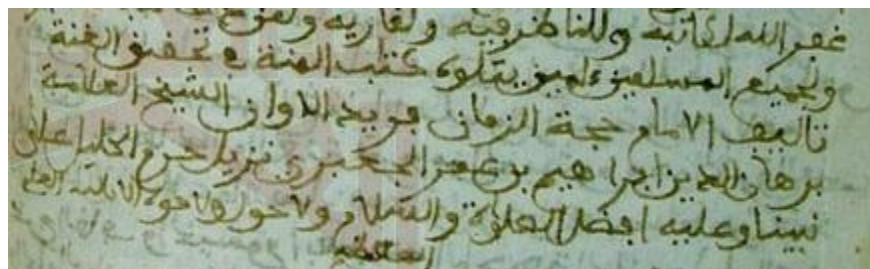 غفر الله لكاتبه وللناظر فيه ولقاريه ولمن
ولجميع المسلمين ءامين يتلوه كتاب المنة في تحقيق الغنة
تاليف الامام حجة الزمان فريد الاوان الشيخ العلامة
برهان الدين ابراهيم بن عمر الجعبري نزيل حرم الخليل على
نبينا وعليه افضل الصلوة والسلام ولا حول ولا قوة الا بالله العلي
العظيم